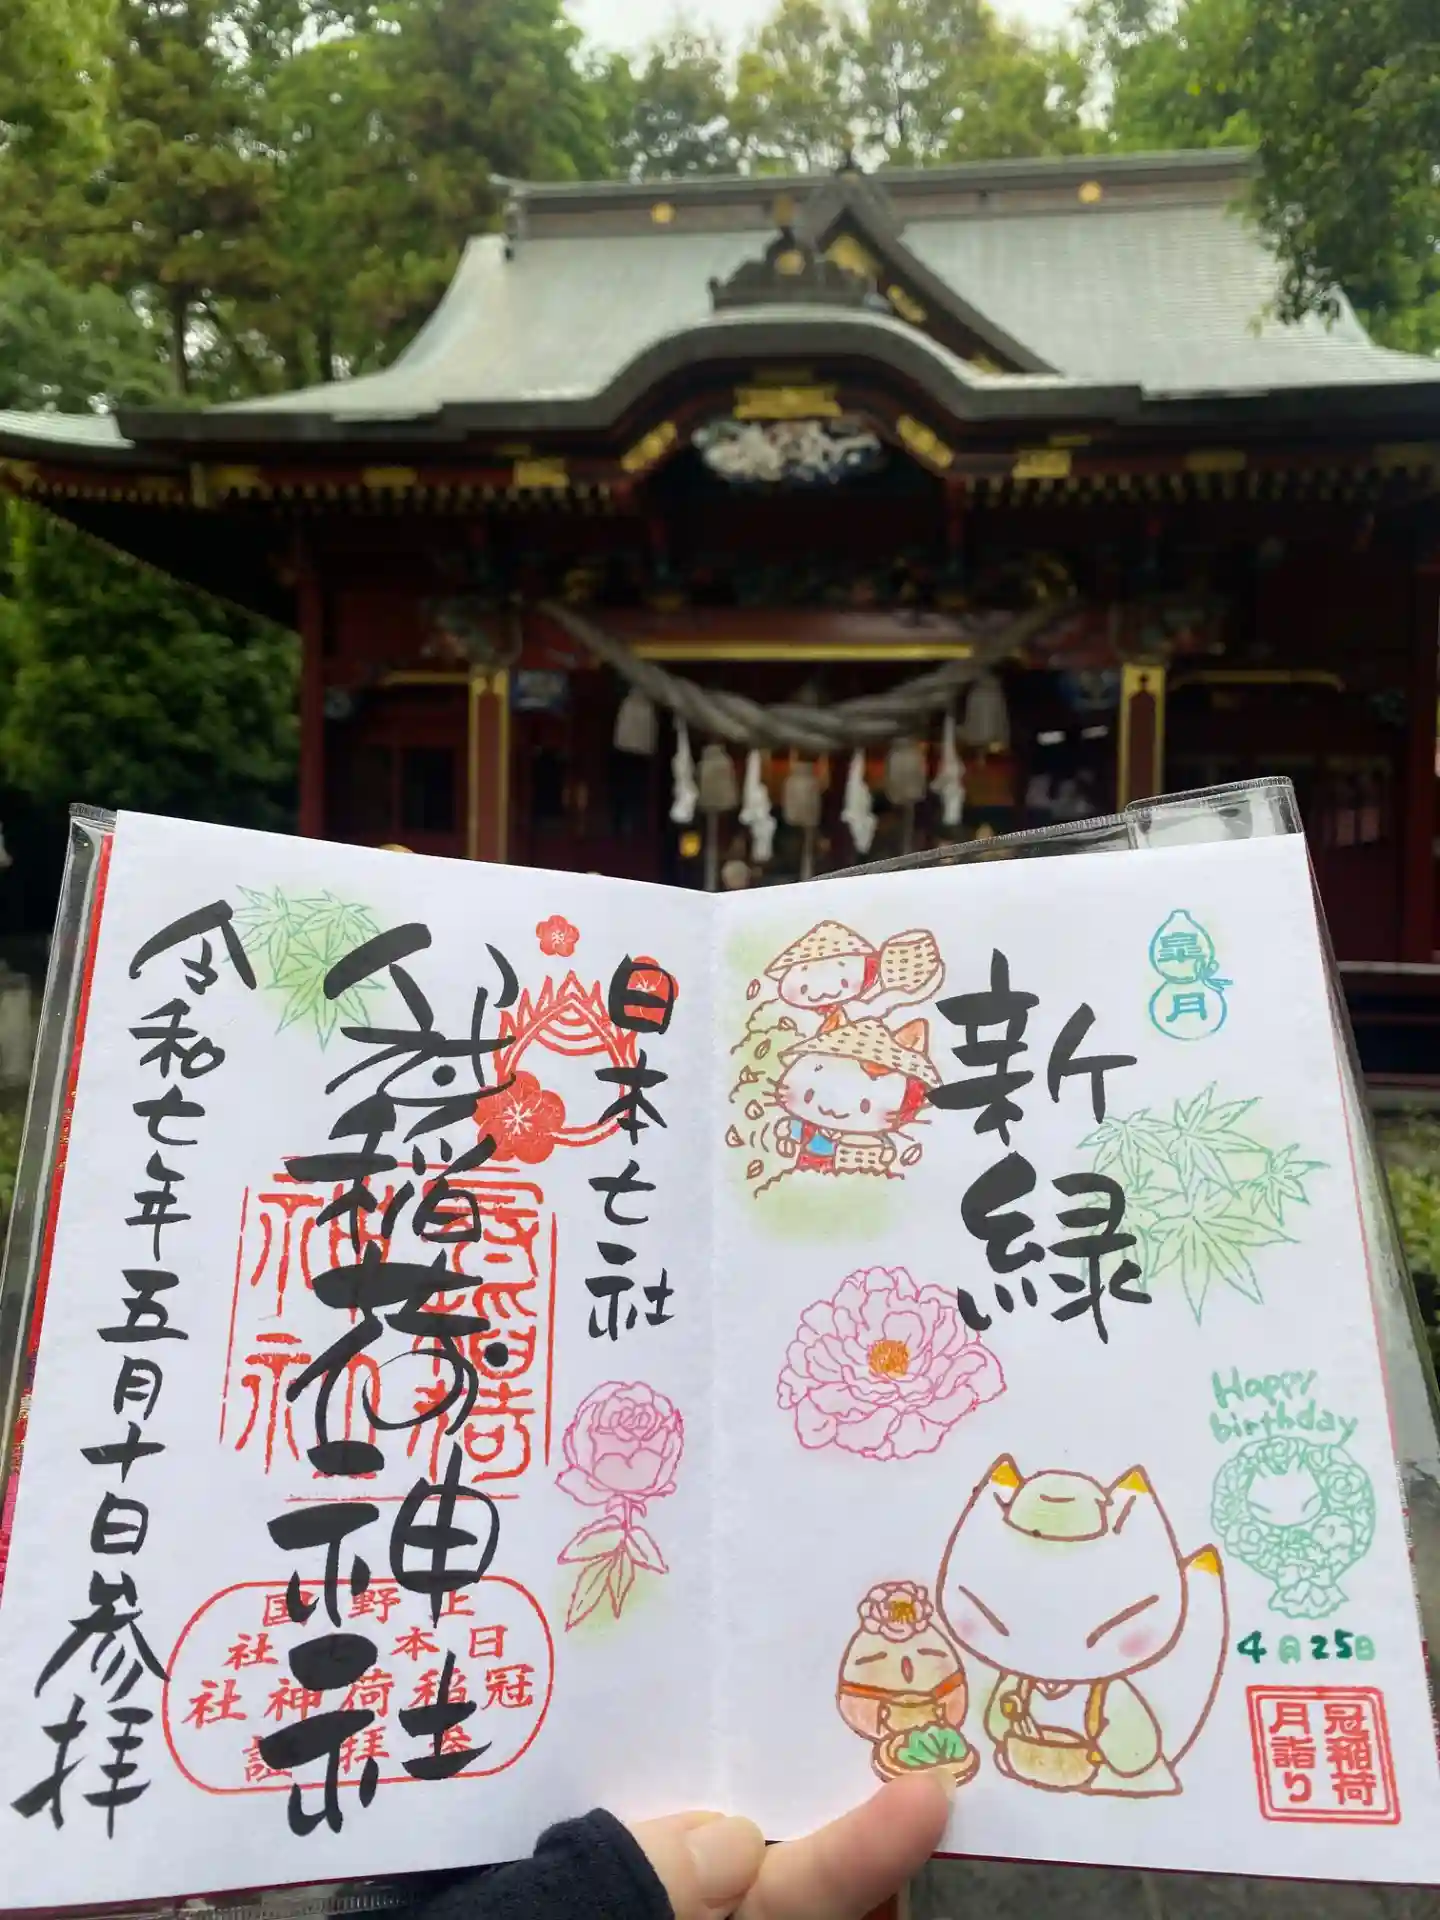 皐月
新緑
Happy
birthday
4月25日
冠稲荷
月詣り
日本七社
冠稲荷神社
令和七年五月十日参拝
冠稲荷
神社
上野国
日本七社
冠稲荷神社
参拝証